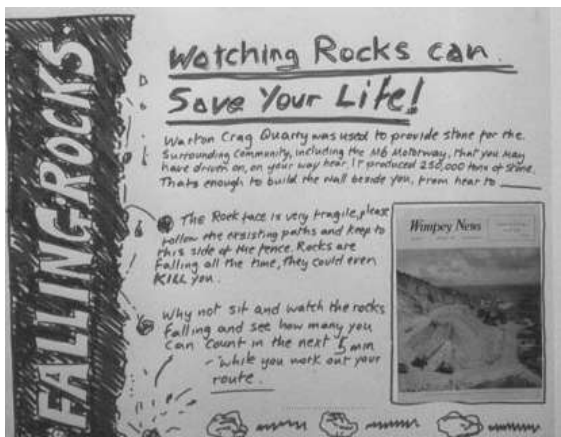 FALLING ROCKS
Watching Rocks can
Save Your Life!
Warton Crag Quarry was used to provide stone for the
Surrounding Community, including the M6 Motorway, that you may
have driven on, on your way hear. It produced 250,000 tons of stone.
Thats enough to build the wall beside you, from hear to
The Rock face is very fragile, please
follow the exsisting paths and keep to
this side of the fence. Rocks are
Falling all the time, they could even
KILL you.
Wimpey News
Why not sit and watch the rocks
falling and see how many you
can count in the next 5 min
- while you work out your
route.